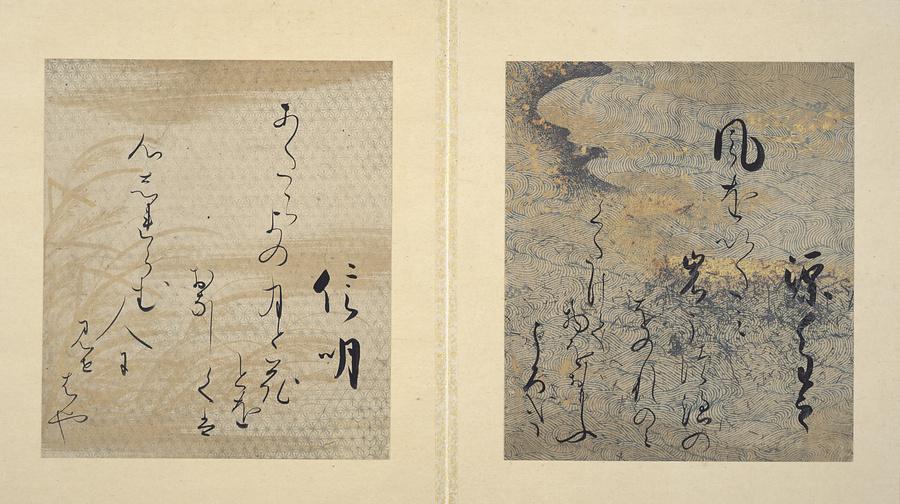 源重之
風をいたミ
岩うつ浪の
をのれのミ
くたけて物をおもふ
ころかな
信明
あたらよの月と花
とを
おなしくは
心志れらむ人に
見せはや